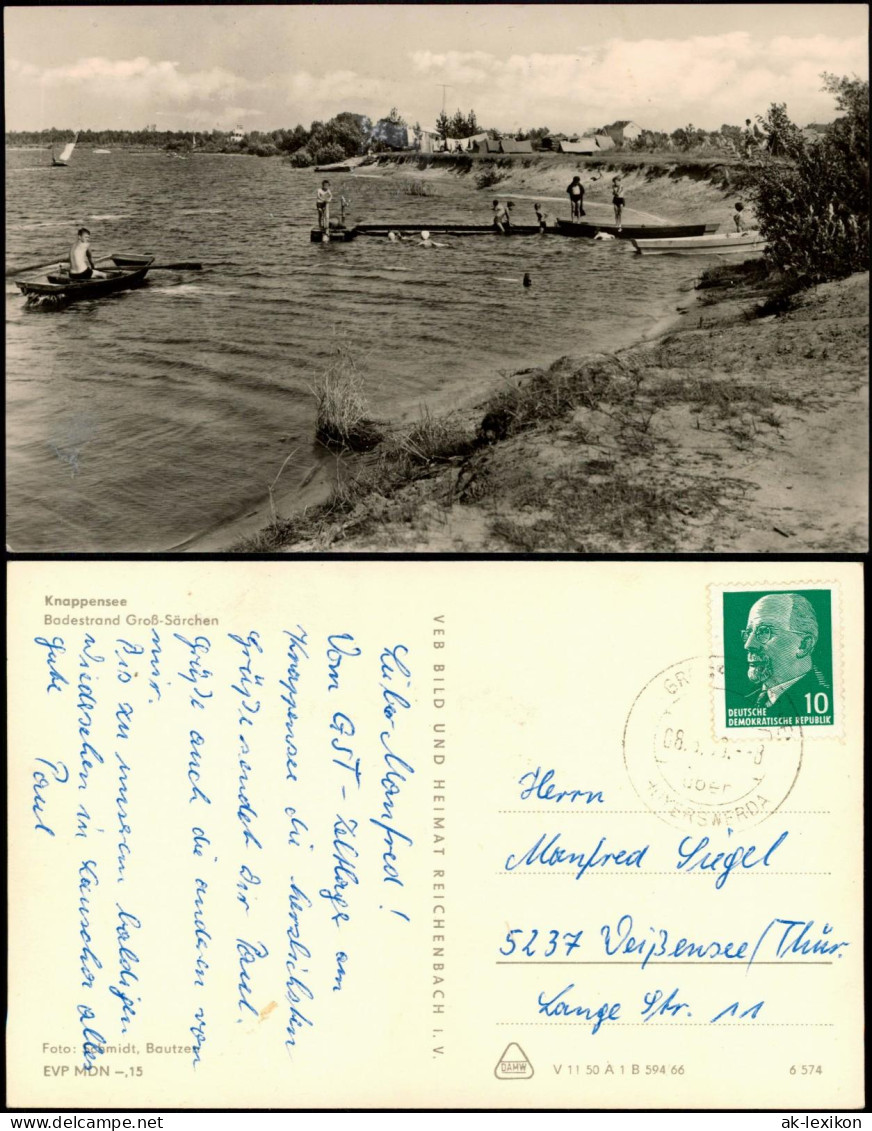 Knappensee
Badestrand Groß-Särchen
Lieber Manfred!
Vom GST-Zeltlager am
Knappensee die herzlichsten
Grüße sendet Dir Paul.
Grüße auch die anderen von
mir.
Bis zu unserem baldigen
Wiedersehen in Lauscha alles
Gute Paul
Foto: Schmidt, Bautzen
EVP MDN –,15
VEB BILD UND HEIMAT REICHENBACH I. V.
10
DEUTSCHE
DEMOKRATISCHE REPUBLIK
über
HOYERSWERDA
Herrn
Manfred Siegel
5237 Weißensee/Thür.
Lange Str. 11
DAMW
V 11 50 A 1 B 594/66
6 574
ak-lexikon.com